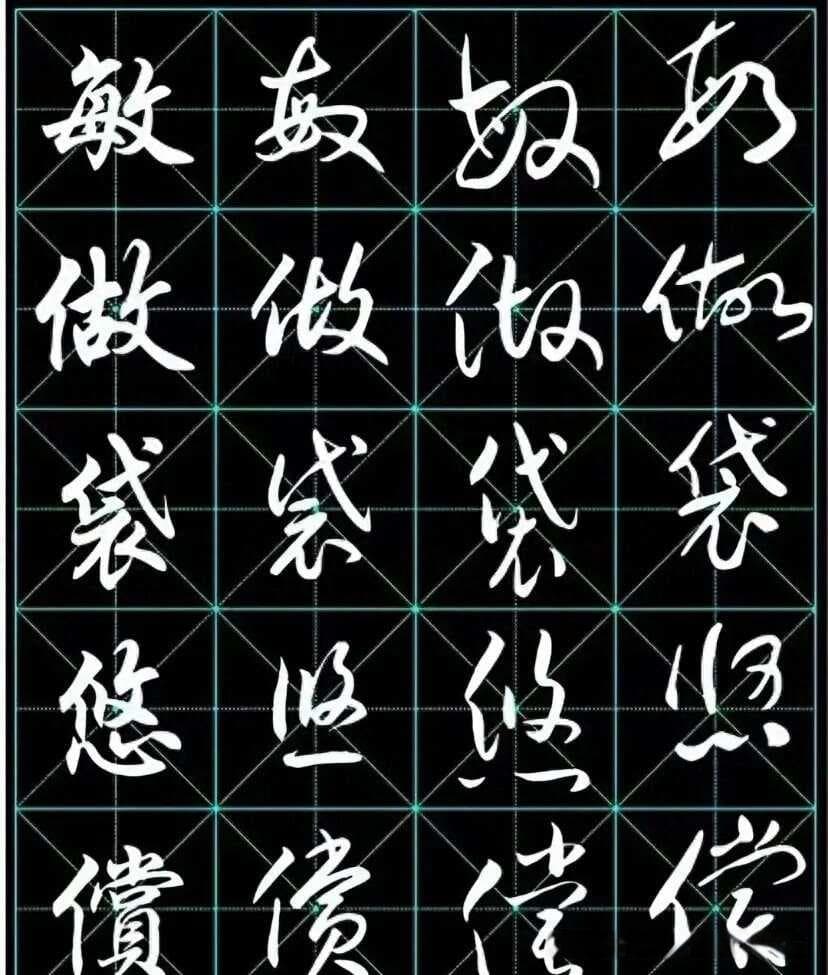 敏敏敏敏
做做做做
袋袋袋袋
悠悠悠悠
償償償償